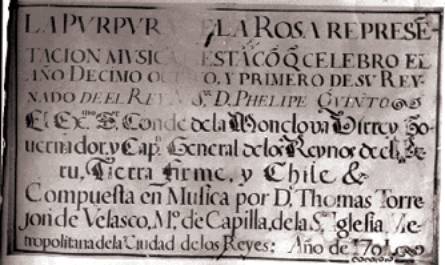 LA PVRPVR LA ROSA REPRESĒ-
TACION MVSICA FIESTA CŌ Q̄ CELEBRO EL
AÑO DECIMO O O, Y PRIMERO DE SU REY-
NADO DE EL REY Sr. D. PHELIPE QVINTO
El Exmo. Sr. Conde de la Monclova Virrey Go-
uernador, y Capn. General de los Reynos de el Pe-
ru, Tierra Firme, y Chile &
Compuesta en Musica por D. Thomas Torre-
jon de Velasco, Mo. de Capilla, de la Sta. Iglesia Me-
tropolitana de la Ciudad de los Reyes: Año de 1701